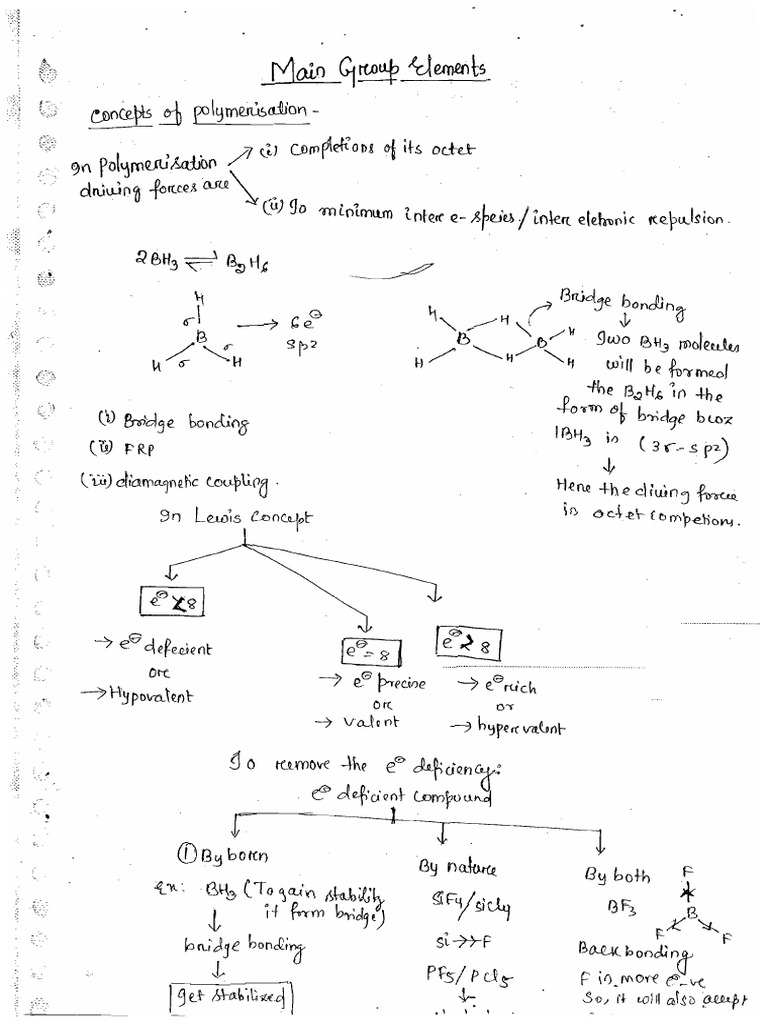 Main Group Elements
Concepts of polymerisation -
In Polymerisation
driving forces are
(i) Completions of its octet
(ii) To minimum inter e- speies / inter eletronic repulsion.
2BH3 ⇌ B2H6
H
σ
B
σ
H σ H
→ 6e⊖
sp2
H H H
B B
H H H
Bridge bonding
Two BH3 molecules
will be formed
the B2H6 in the
form of bridge bcoz
1BH3 is (3σ-sp2)
Hene the diving force
is octet competions.
(i) Bridge bonding
(ii) FRP
(iii) diamagnetic coupling.
In Lewis Concept
e⊖ < 8
→ e⊖ defecient
or
→ Hypovalent
e⊖ = 8
→ e⊖ precise
or
→ valent
e⊖ > 8
→ e⊖ rich
or
→ hypervalent
To remove the e⊖ deficiency:
e⊖ deficient compound
① By boren
Ex: BH3 (To gain stability
it form bridge)
bridge bonding
get stabilized
By nature
SiF4/sicl4
si→→F
PF5/PCl5
By both
BF3
F
B
F F
Back bonding
F is more e-ve
So, it will also accept